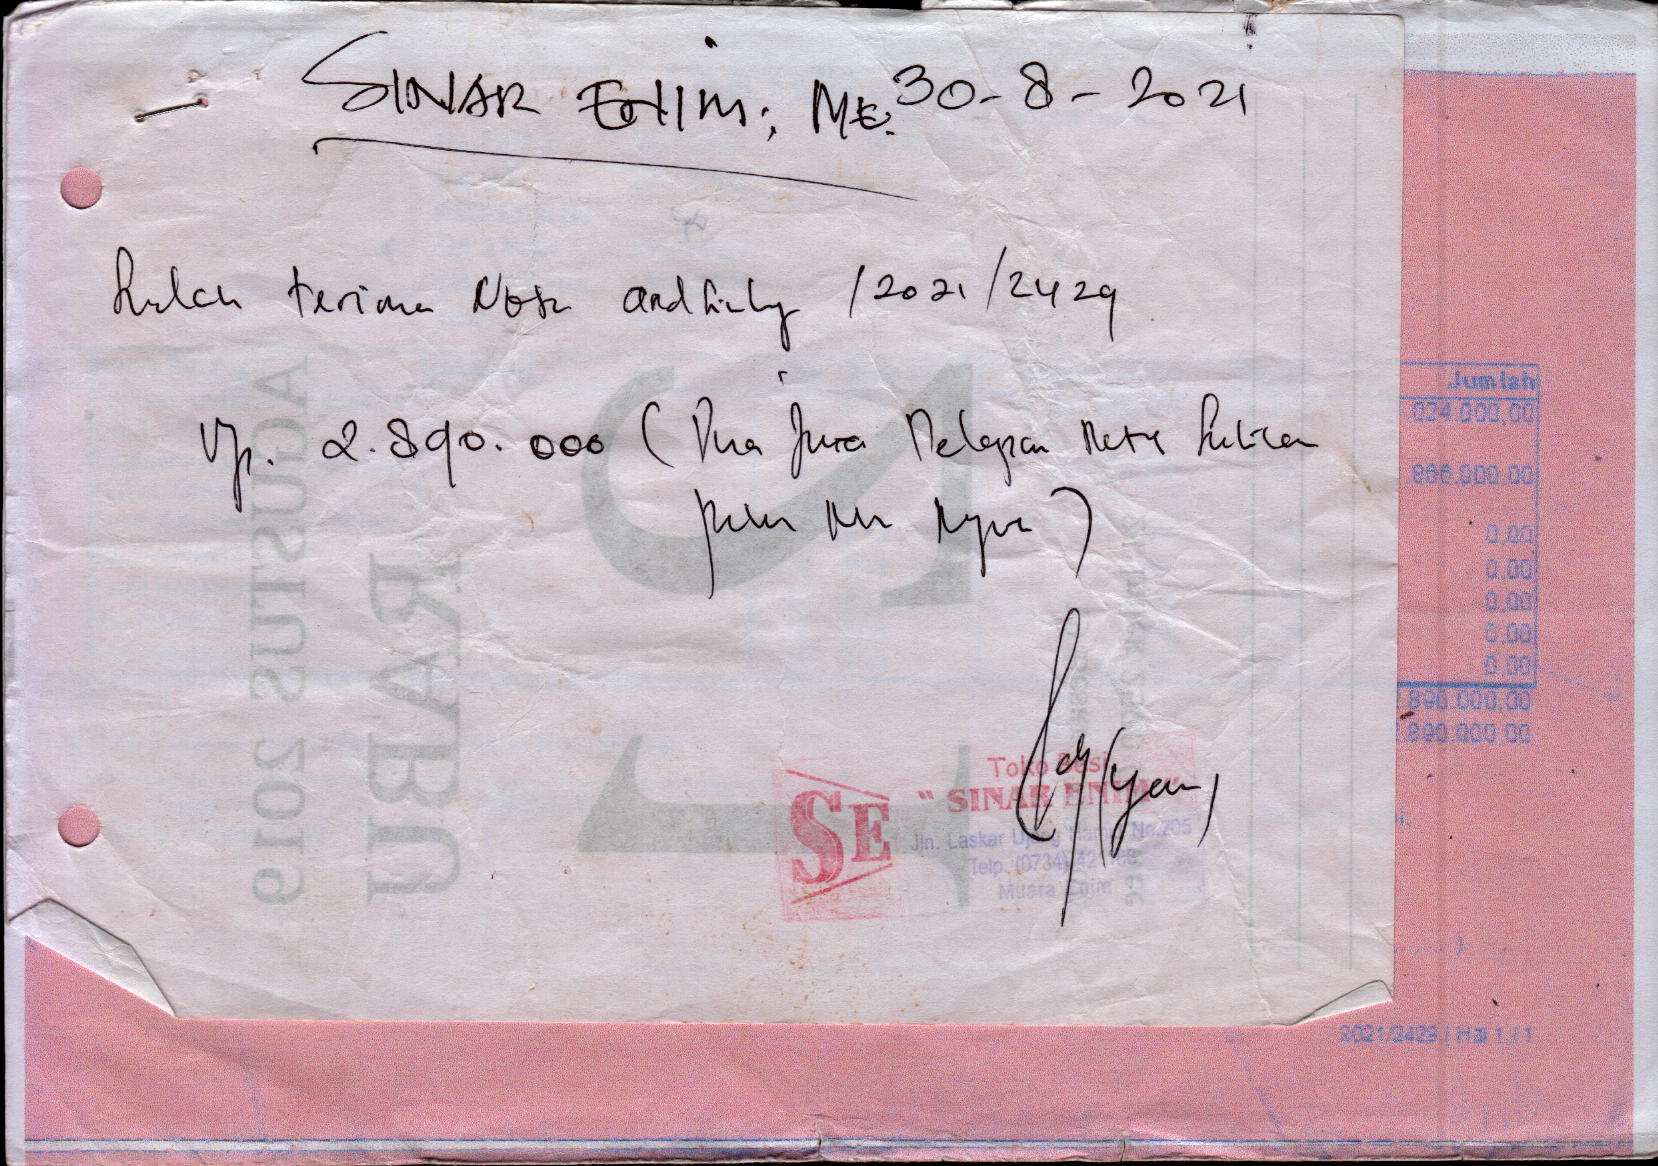 SINAR ENIM, ME. 30-8-2021
Sudah terima Nota /2021/2429
Rp. 2.890.000 (Dua Juta Delapan Ratus Sembilan
puluh Ribu Rupiah)
Toko Besi
SE " SINAR ENIM "
Jln. Laskar Ujang No.205
Telp. (0734)
Muara Enim
AGUSTUS 2019
RABU
21
Jumlah
024.000,00
866.000,00
0,00
0,00
0,00
0,00
0,00
890.000,00
890.000,00
2021/2429 Hal 1 / 1